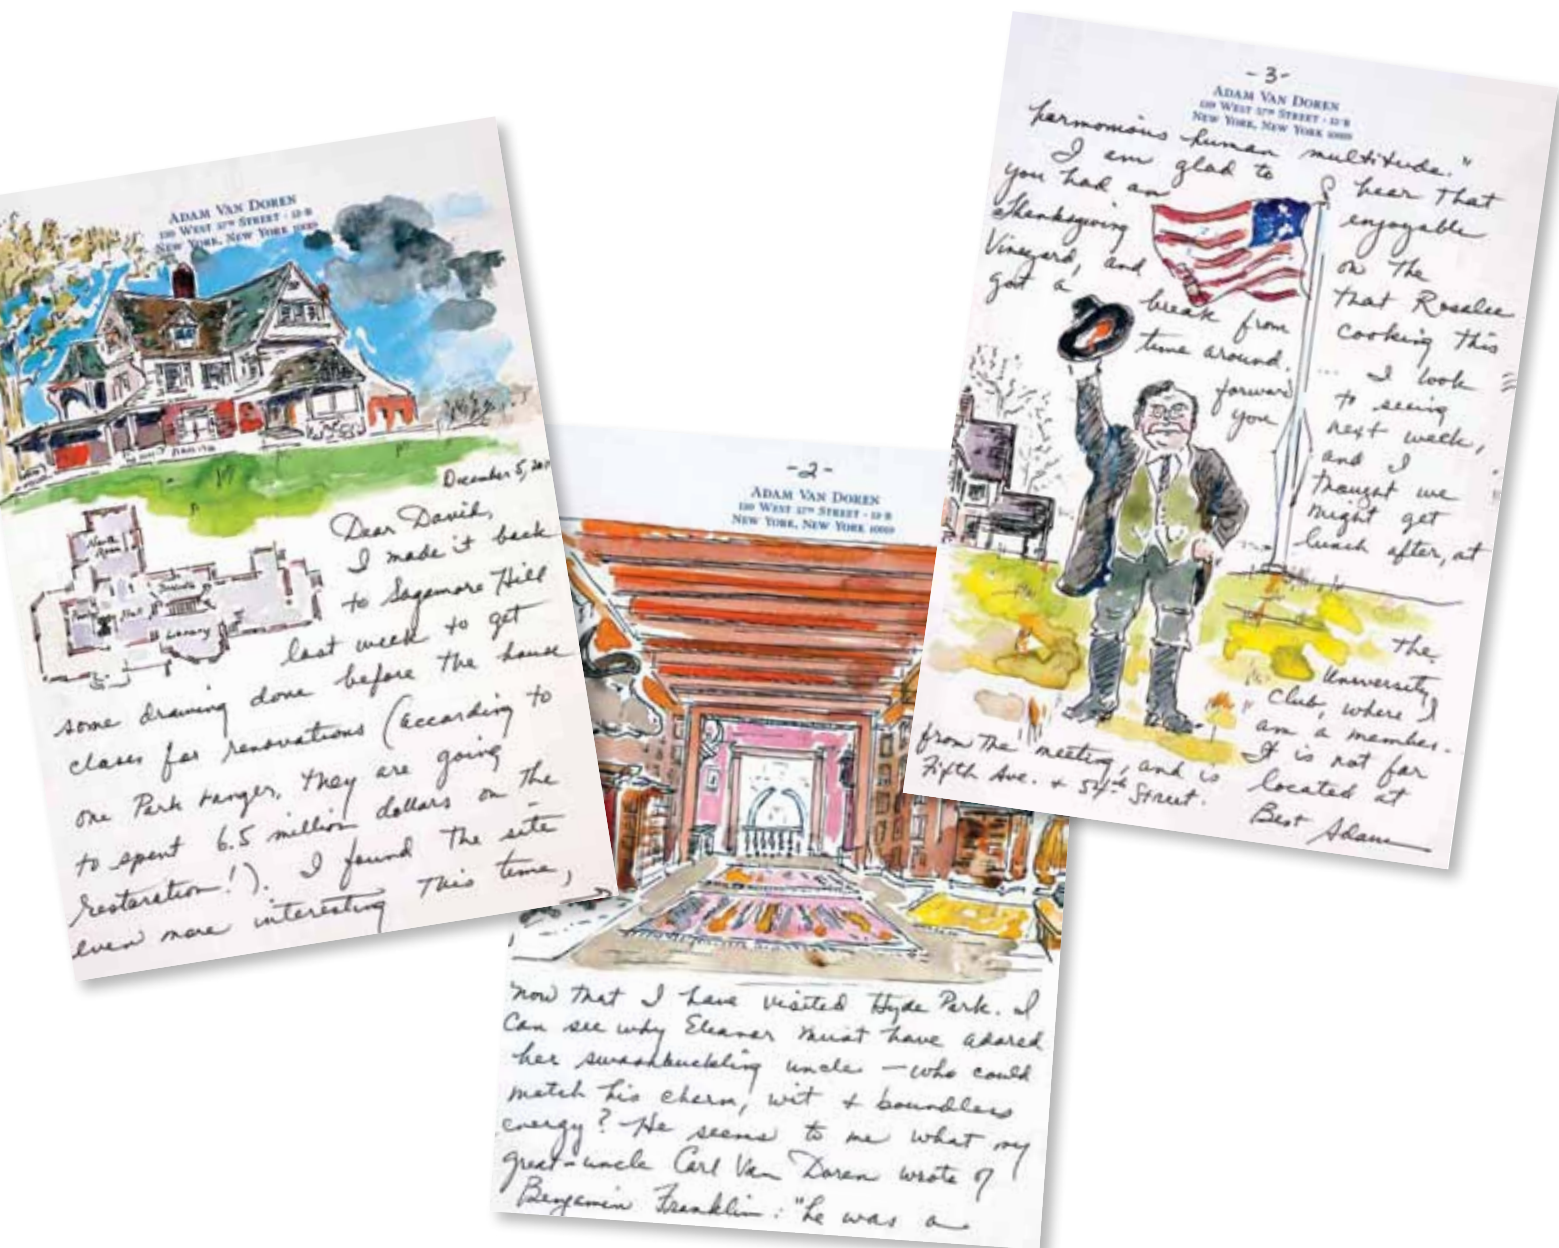 ADAM VAN DOREN
WEST 57TH STREET · 12-B
NEW YORK, NEW YORK 10019
December 5,
North
Room
Hall
Library
Dear David,
I made it back
to Sagamore Hill
last week to get
some drawing done before the house
closes for renovations (according to
one Park ranger, they are going
to spent 6.5 million dollars on the
restoration!). I found the site
even more interesting this time,
-2-
ADAM VAN DOREN
WEST 57TH STREET · 12-B
NEW YORK, NEW YORK 10019
now that I have visited Hyde Park. I
can see why Eleanor must have adored
her swashbuckling uncle – who could
match his charm, wit + boundless
energy? He seems to me what my
great-uncle Carl Van Doren wrote of
Benjamin Franklin: "he was a
-3-
ADAM VAN DOREN
WEST 57TH STREET · 12-B
NEW YORK, NEW YORK 10019
harmonious human multitude."
I am glad to hear that
you had an enjoyable
Thanksgiving on the
Vineyard, and that Rosalee
got a break from cooking this
time around. ... I look
forward to seeing
you next week,
and I
thought we
might get
lunch after, at
the
University
Club, where I
am a member.
It is not far
from the meeting, and is located at
Fifth Ave. + 54th Street.
Best Adam